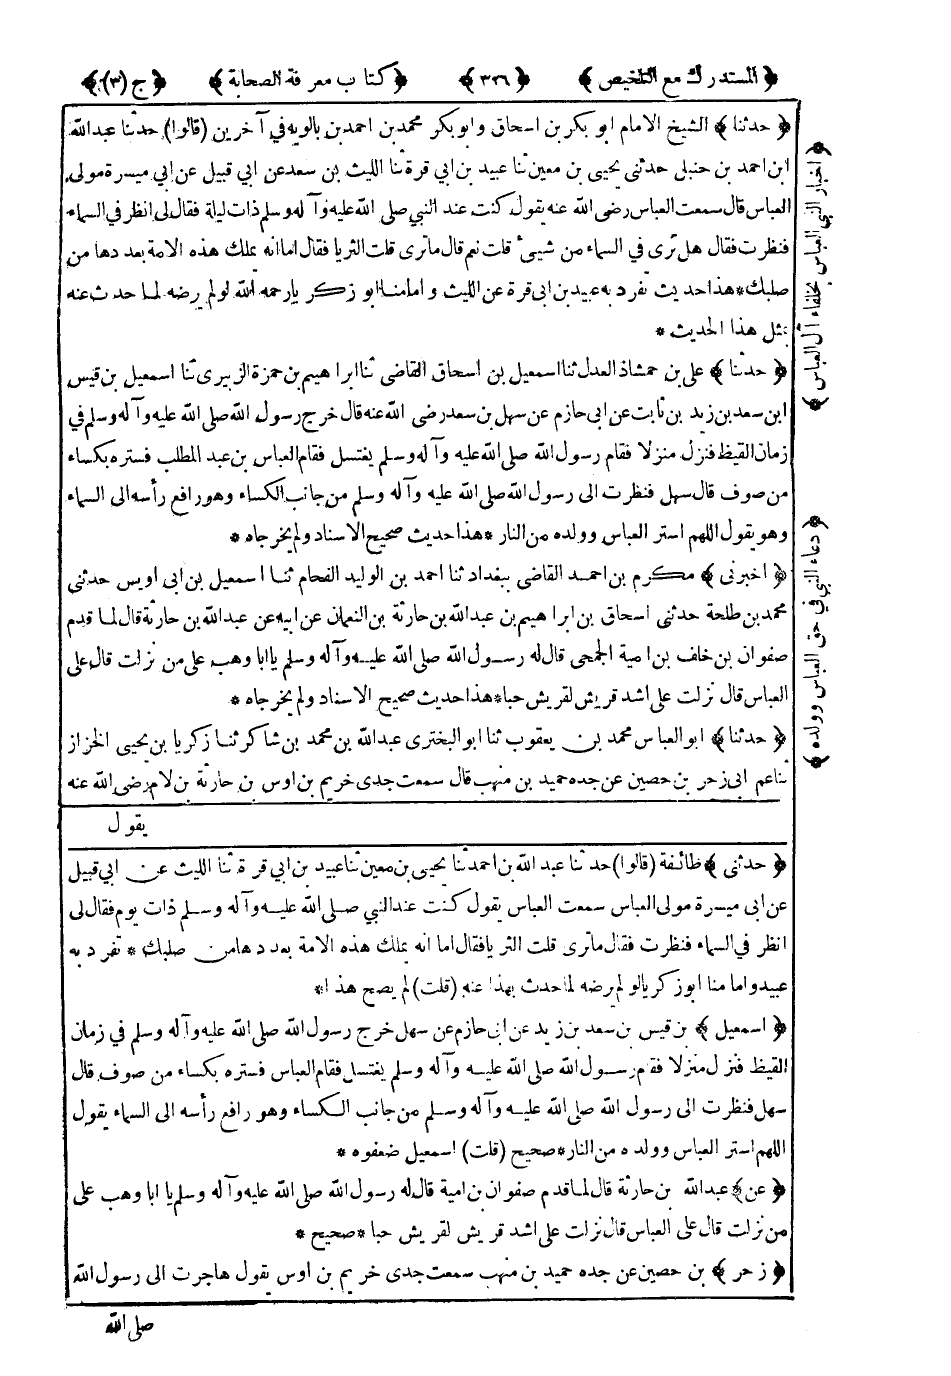 ﴿ المستدرك مع التلخيص ﴾ ﴿ ٣٢٦ ﴾ ﴿ كتاب معرفة الصحابة ﴾ ﴿ ج (٣) ﴾
﴿ حدثنا ﴾ الشيخ الامام ابو بكر بن اسحاق وابو بكر محمد بن احمد بن بالويه في آخرين (قالوا) حدثنا عبد الله
ابن احمد بن حنبل حدثني يحيى بن معين ثنا عبيد بن ابي قرة ثنا الليث بن سعد عن ابي قبيل عن ابي ميسرة مولى
العباس قال سمعت العباس رضى الله عنه يقول كنت عند النبي صلى الله عليه وآله وسلم ذات ليلة فقال لى انظر في السماء
فنظرت فقال هل ترى في السماء من شيئ قلت نعم قال ما ترى قلت الثريا فقال اما انه يملك هذه الامة بعددها من
صلبك * هذا حديث تفرد به عبيد بن ابى قرة عن الليث و امامنا ابو زكريا رحمه الله لو لم يرضه لما حدث عنه
بمثل هذا الحديث *
﴿ حدثنا ﴾ على بن حمشاذ العدل ثنا اسمعيل بن اسحاق القاضى ثنا ابراهيم بن حمزة الزبيرى ثنا اسمعيل بن قيس
ابن سعد بن زيد بن ثابت عن ابى حازم عن سهل بن سعد رضى الله عنه قال خرج رسول الله صلى الله عليه وآله وسلم في
زمان القيظ فنزل منزلا فقام رسول الله صلى الله عليه وآله وسلم يغتسل فقام العباس بن عبد المطلب فستره بكساء
من صوف قال سهل فنظرت الى رسول الله صلى الله عليه وآله وسلم من جانب الكساء وهو رافع رأسه الى السماء
وهو يقول اللهم استر العباس وولده من النار * هذا حديث صحيح الاسناد ولم يخرجاه *
﴿ اخبرنى ﴾ مكرم بن احمد القاضى ببغداد ثنا احمد بن الوليد الفحام ثنا اسمعيل بن ابى اويس حدثنى
محمد بن طلحة حدثنى اسحاق بن ابراهيم بن عبد الله بن حارثة بن النعمان عن ابيه عن عبد الله بن حارثة قال لما قدم
صفوان بن خلف بن امية الجمحى قال له رسول الله صلى الله عليه وآله وسلم يا ابا وهب على من نزلت قال على
العباس قال نزلت على اشد قريش لقريش حبا * هذا حديث صحيح الاسناد ولم يخرجاه *
﴿ حدثنا ﴾ ابو العباس محمد بن يعقوب ثنا ابو البخترى عبد الله بن محمد بن شاكر ثنا زكريا بن يحيى الخزاز
ثنا عم ابى زحر بن حصين عن جده حميد بن منهب قال سمعت جدى خريم بن اوس بن حارثة بن لام رضى الله عنه
يقول
﴿ حدثنى ﴾ طائفة (قالوا) حدثنا عبد الله بن احمد ثنا يحيى بن معين ثنا عبيد بن ابي قرة ثنا الليث عن ابي قبيل
عن ابى ميسرة مولى العباس سمعت العباس يقول كنت عند النبي صلى الله عليه وآله وسلم ذات يوم فقال لى
انظر في السماء فنظرت فقال ما ترى قلت الثريا فقال اما انه يملك هذه الامة بعددها من صلبك * تفرد به
عبيد واما منا ابو زكريا لو لم يرضه لما حدث بهذا عنه (قلت) لم يصح هذا *
﴿ اسمعيل ﴾ بن قيس بن سعد بن زيد عن ابى حازم عن سهل خرج رسول الله صلى الله عليه وآله وسلم في زمان
القيظ فنزل منزلا فقام رسول الله صلى الله عليه وآله وسلم يغتسل فقام العباس فستره بكساء من صوف قال
سهل فنظرت الى رسول الله صلى الله عليه وآله وسلم من جانب الكساء وهو رافع رأسه الى السماء يقول
اللهم استر العباس وولده من النار * صحيح (قلت) اسمعيل ضعفوه *
﴿ عن ﴾ عبد الله بن حارثة قال لما قدم صفوان بن امية قال له رسول الله صلى الله عليه وآله وسلم يا ابا وهب على
من نزلت قال على العباس قال نزلت على اشد قريش لقريش حبا * صحيح *
﴿ زحر ﴾ بن حصين عن جده حميد بن منهب سمعت جدى خريم بن اوس يقول هاجرت الى رسول الله
صلى الله
﴿ اخبار النبي العباس بخلفاء آل العباس ﴾
﴿ دعاء النبي في حق العباس وولده ﴾